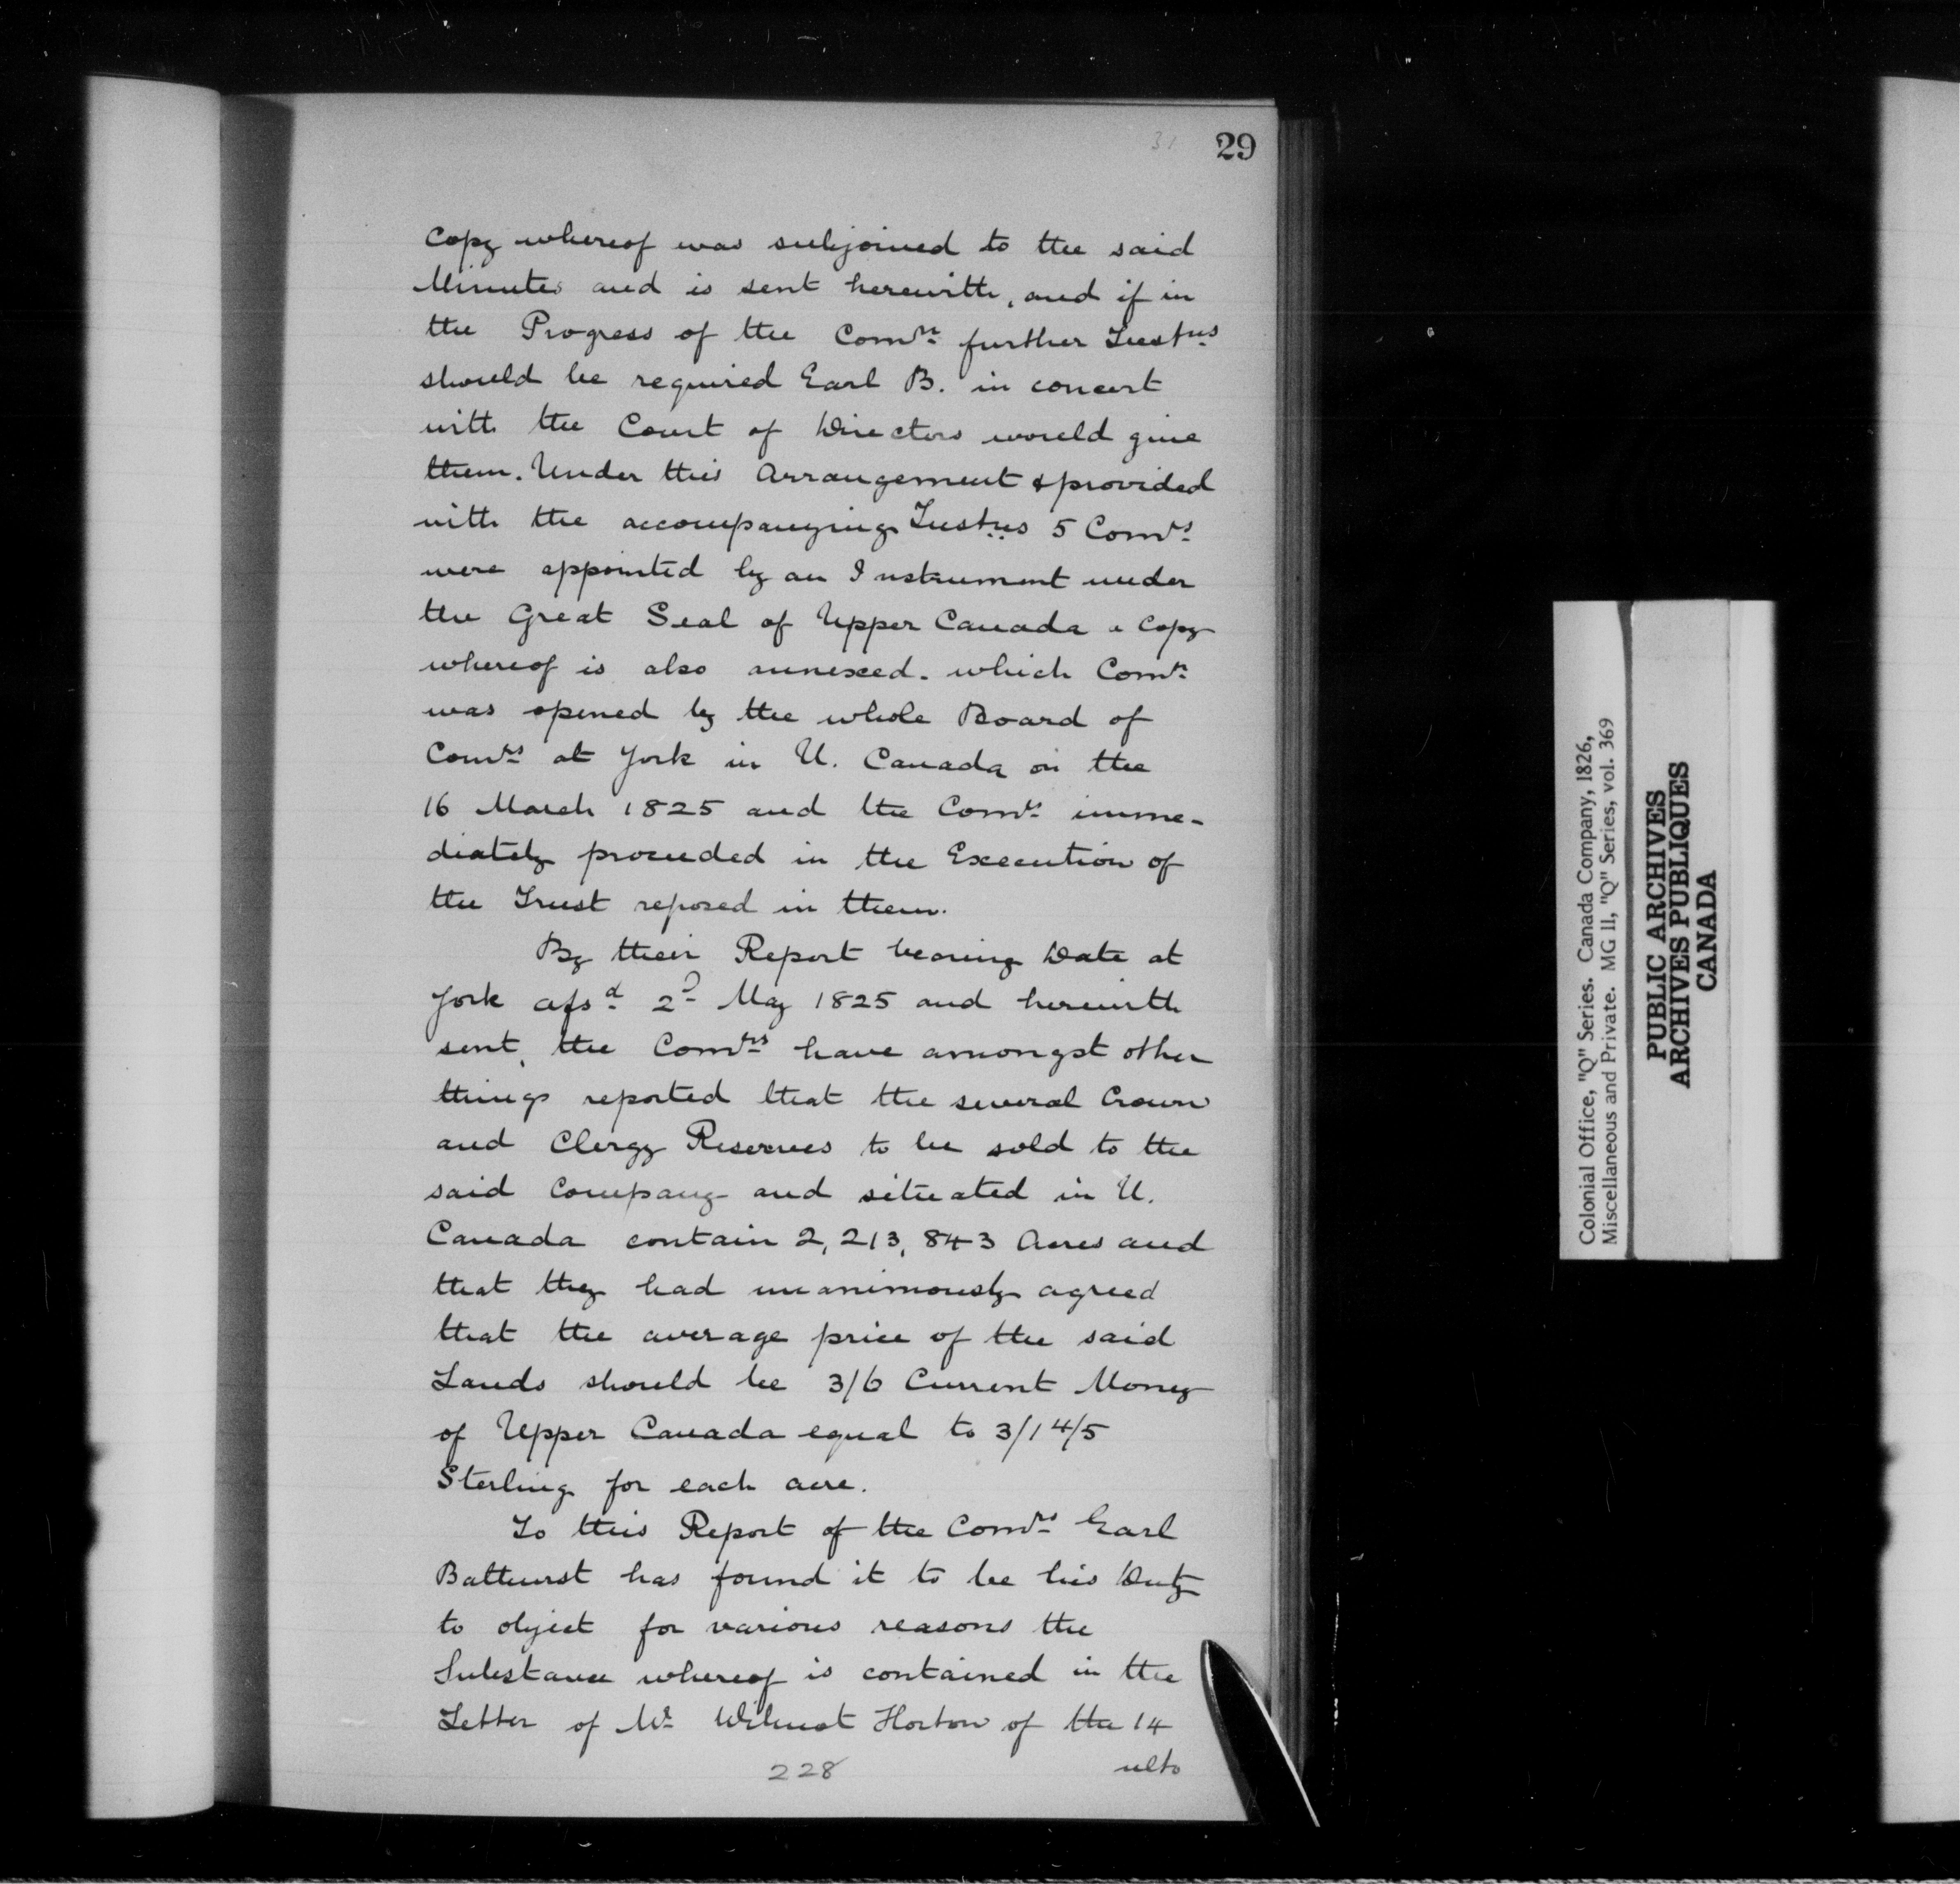 31 29
Copy whereof was subjoined to the said
Minutes and is sent herewith, and if in
the Progress of the Comn further Instns
should be required Earl B. in concert
with the Court of Directors would give
them. Under this Arrangement & provided
with the accompanying Instns 5 Comrs
were appointed by an Instrument under
the Great Seal of Upper Canada a Copy
whereof is also annexed. which Comn
was opened by the whole Board of
Comrs at York in U. Canada on the
16 March 1825 and the Comrs imme-
diately proceeded in the Execution of
the Trust reposed in them.
By their Report bearing Date at
York afsd 2d May 1825 and herewith
sent, the Comrs have amongst other
things reported that the several Crown
and Clergy Reserves to be sold to the
said Company and situated in U.
Canada contain 2,213,843 Acres and
that they had unanimously agreed
that the average price of the said
Lands should be 3/6 Current Money
of Upper Canada equal to 3/1 4/5
Sterling for each acre.
To this Report of the Comrs Earl
Bathurst has found it to be his Duty
to object for various reasons the
Substance whereof is contained in the
Letter of Mr Wilmot Horton of the 14
ulto
228
Colonial Office, "Q" Series. Canada Company, 1826,
Miscellaneous and Private. MG 11, "Q" Series, vol. 369
PUBLIC ARCHIVES
ARCHIVES PUBLIQUES
CANADA